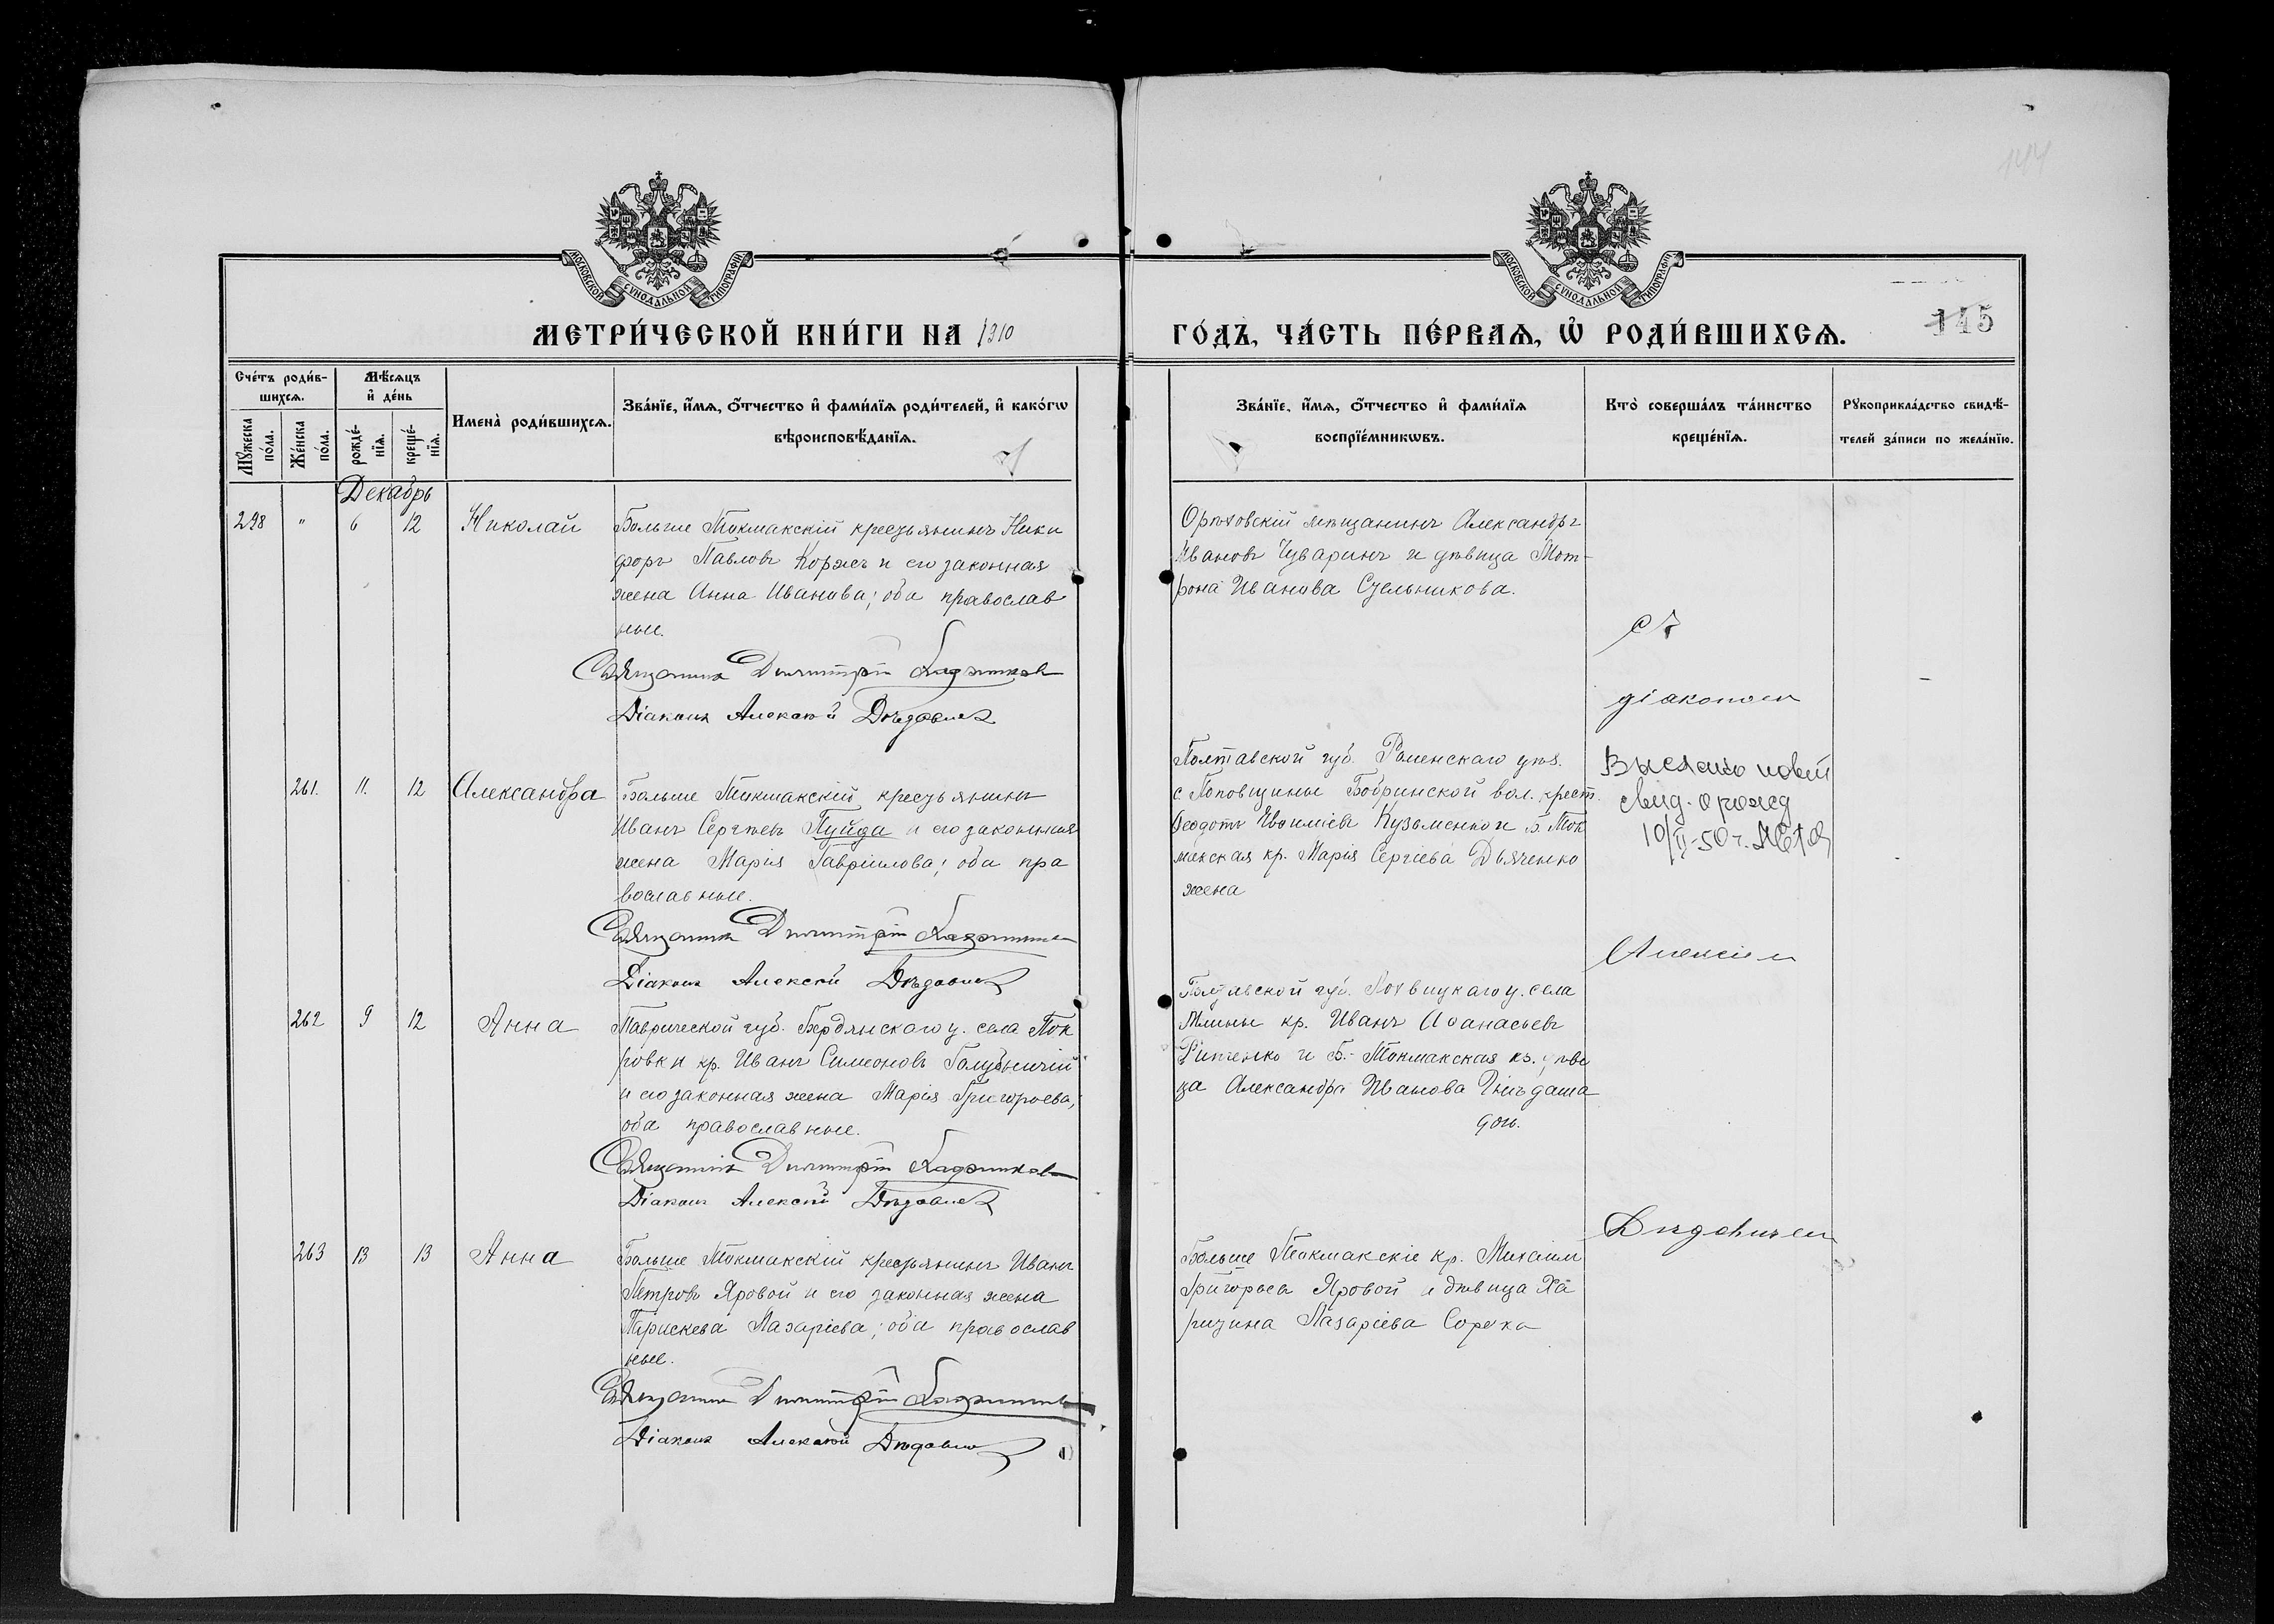 144
МОСКОВСКОЙ СУНОДАЛЬНОЙ ТИПОГРАФІИ
МОСКОВСКОЙ СУНОДАЛЬНОЙ ТИПОГРАФІИ
МЕТРИ́ЧЕСКОЙ КНИ́ГИ НА 1910
ГО́ДЪ, ЧА́СТЬ ПЕ́РВАѦ, Ѡ҆ РОДИ́ВШИХСѦ.
145
Сче́тъ роди́в-
шихсѧ.
Мѣ́сѧцъ
и҆ де́нь
Мꙋ́жеска по́ла.
Же́нска по́ла.
рожде́-
нїѧ.
креще́-
нїѧ.
Имена̀ роди́вшихсѧ.
Зва́нїе, и҆́мѧ, ѻ҆́тчество и҆ фами́лїѧ роди́телей, и҆ како́гѡ
вѣроисповѣ́данїѧ.
Зва́нїе, и҆́мѧ, ѻ҆́тчество и҆ фами́лїѧ
воспрїе́мникѡвъ.
Кто̀ соверша́лъ та́инство
креще́нїѧ.
Рꙋкоприкла́дство свидѣ́-
телей за́писи по жела́нїю.
Декабрь
298 " 6 12 Николай
Больше Токмакскій крестьянинъ Ники
форъ Павловъ Коржъ и его законная
жена Анна Иванова; оба православ
ные.
Священникъ Димитрій
Діаконъ Алексѣй
Орѣховскій мѣщанинъ Александръ
Ивановъ Чуваринъ и дѣвица Мот-
рона Иванова Стельникова.
съ
діакономъ
261. 11. 12 Александра
Больше Токмакскій крестьянинъ
Иванъ Сергѣевъ Пуйда и его законная
жена Марія Гавріилова; оба пра
вославные.
Священникъ Димитрій
Діаконъ Алексѣй
Полтавской губ. Роменскаго уѣз.
с. Поповщины Бобринской вол. крест.
Феодотъ Евфиміевъ Кузьменко и Б. Ток
макская кр. Марія Сергіева Дьяченко
жена
Выслано повт
свид. о рожд
10/II-50г.
Алексіем
262 9 12 Анна
Таврической губ. Бердянскаго у. села Пок
ровки кр. Иванъ Симеоновъ Голубничій
и его законная жена Марія Григорьева;
оба православные.
Священникъ Димитрій
Діаконъ Алексѣй
Полтавской губ. Лохвицкаго у. села
Млины кр. Иванъ Афанасьевъ
и Б.-Токмакская кр. дѣви
ца Александра Иванова
263 13 13 Анна
Больше Токмакскій крестьянинъ Иванъ
Петровъ Яровой и его законная жена
Параскева Назаріева; оба православ
ные.
Священникъ Димитрій
Діаконъ Алексѣй
Больше Токмакскіе кр. Михаилъ
Григорьев Яровой и дѣвица Ха
ритина Лазаріева Сорока